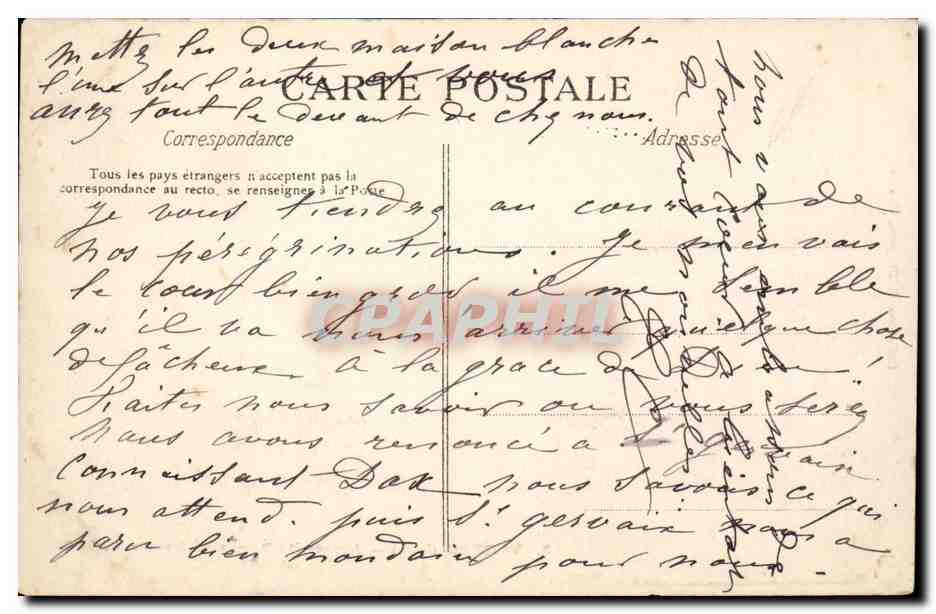 mettez les deux maison blanche
l'une sur l'autre et vous
CARTE POSTALE
aurez tout le devant de chez nous.
Correspondance
Adresse
Tous les pays étrangers n acceptent pas la
correspondance au recto, se renseigner à la Poste
Je vous tiendrez au courant de
nos pérégrinations. Je m'en vais
le coeur bien gros il me semble
qu'il va nous arriver quelque chose
de fâcheux à la grace de Dieu!
Faites nous savoir ou vous serez
nous avons renoncé a St gervaix
connaissant Dax nous savons ce qui
nous attend. puis St gervaix nous a
paru bien mondain pour nous.
nous vous
tout coeur
de vos nouvelles
CPAPHIL